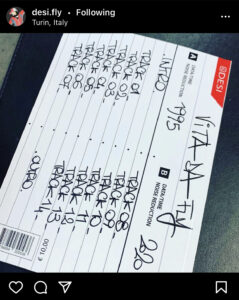 desi.fly • Following
Turin, Italy
@DESI
VITA DA FLY
A DATE/TIME
NOISE REDUCTION
1995
INTRO
TRACK 01-
TRACK 02-
TRACK 03-
TRACK 04-
TRACK 05-
TRACK 06-
TRACK 07-
B DATE/TIME
NOISE REDUCTION
TRACK 08-
TRACK 09-
TRACK 10-
TRACK 11-
TRACK 12-
TRACK 13-
TRACK 14-
OUTRO
10,00